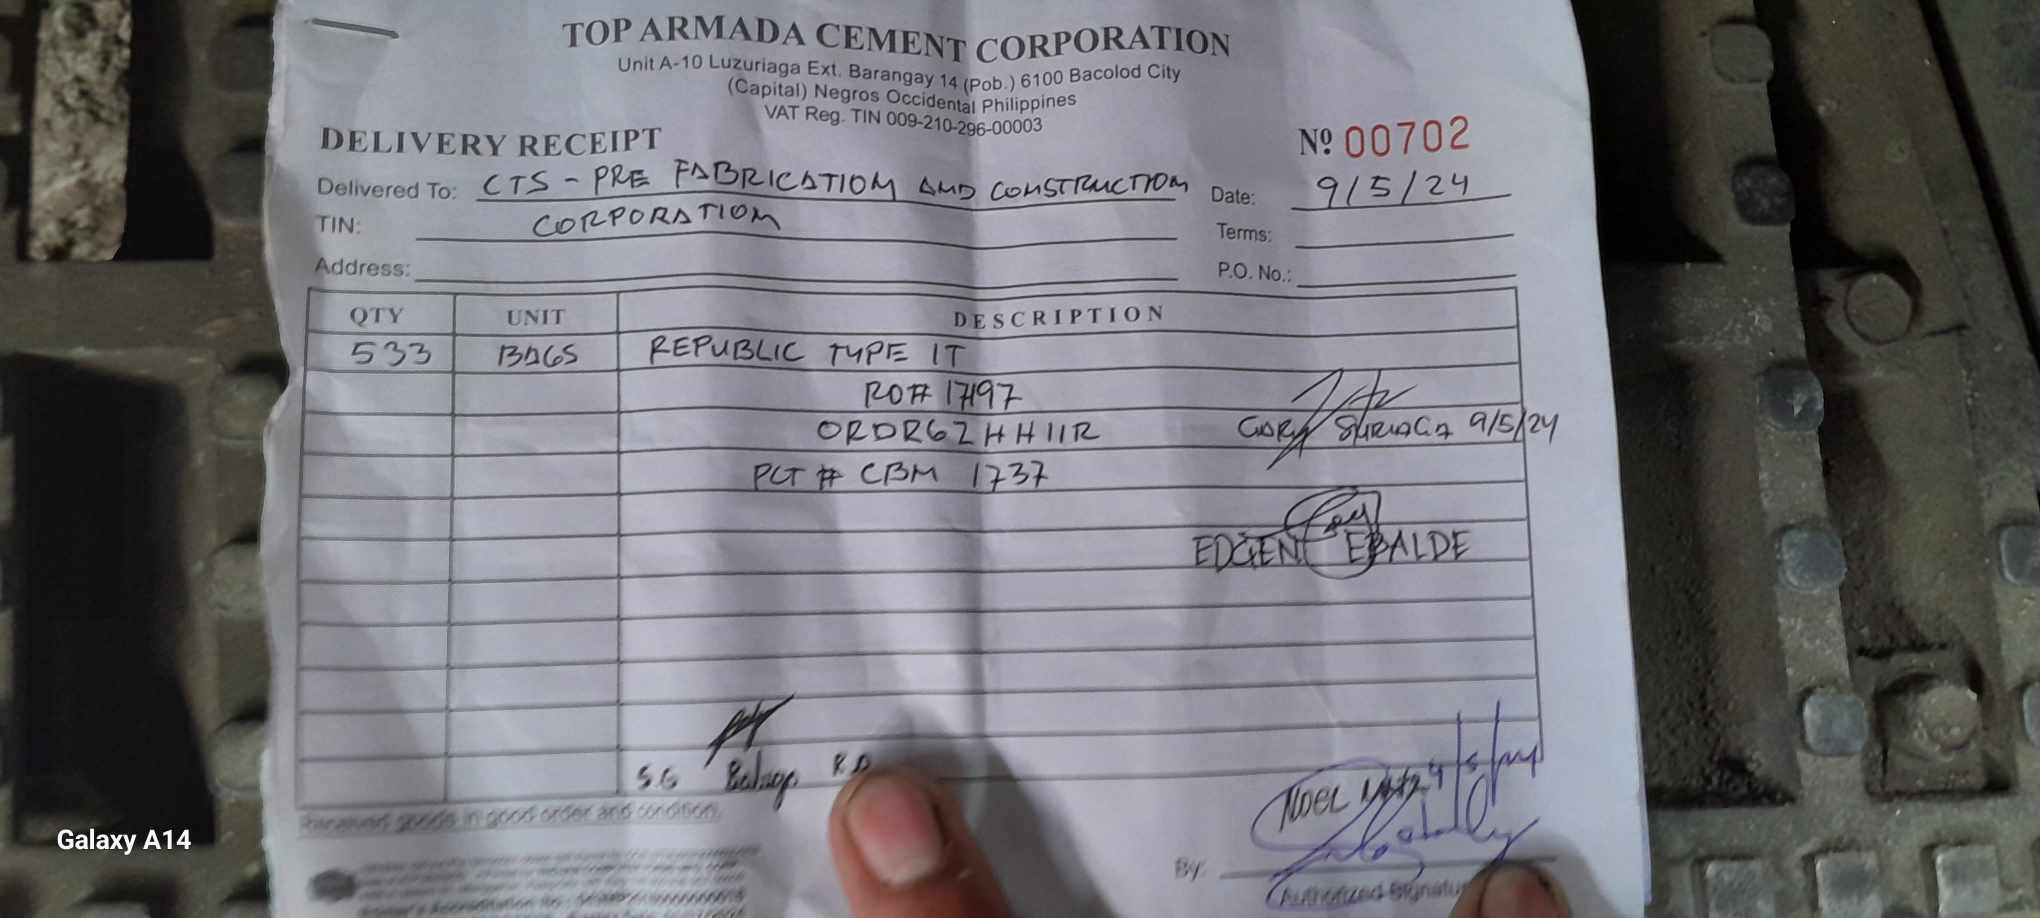 TOP ARMADA CEMENT CORPORATION
Unit A-10 Luzuriaga Ext. Barangay 14 (Pob.) 6100 Bacolod City
(Capital) Negros Occidental Philippines
VAT Reg. TIN 009-210-296-00003
DELIVERY RECEIPT
Nº 00702
Delivered To: CTS - PRE FABRICATION AND CONSTRUCTION
Date: 9/5/24
TIN: CORPORATION
Terms:
Address:
P.O. No.:
QTY UNIT DESCRIPTION
533 BAGS REPUBLIC TYPE 1T
RO# 17197
ORDR62HH11R
9/5/24
PLT # CBM 1737
EDGEN EBALDE
SG
Received goods in good order and condition.
NOEL
By:
Authorized Signatu
Galaxy A14